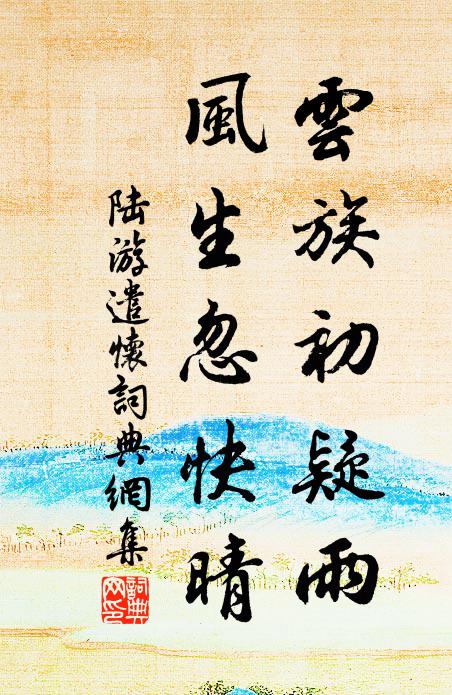 雲族初疑雨
風生忽快晴
陆游遣懷詞典網集